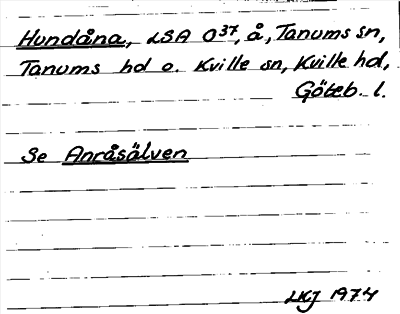 Hundåna, LSA O37, å, Tanums sn,
Tanums hd o. Kville sn, Kville hd,
Göteb. l.
Se Anråsälven
LKJ 1974